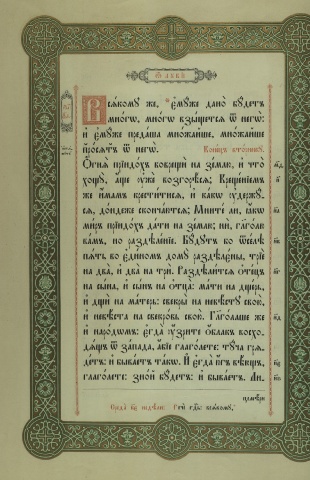 Ѿ лꙋкѝ
Всѧ́комꙋ же, є҆мꙋ́же дано̀ бꙋ́детъ
мно́гѡ, мно́гѡ взы́щетсѧ ѿ негѡ̀:
и҆ є҆мꙋ́же преда́ша мно́жайше, мно́жайше
про́сѧтъ ѿ негѡ̀. Коне́цъ вто́рникꙋ.
Ѻ҆гнѧ̀ прїидо́хъ воврещѝ на зе́млю, и҆ что̀
хощꙋ̀, а҆́ще ᲂу҆жѐ возгорѣ́сѧ; Креще́нїемъ
же и҆́мамъ крести́тисѧ, и҆ ка́кѡ ᲂу҆держꙋ́-
сѧ, до́ндеже сконча́ютсѧ; Мните́ ли, ка́кѡ
ми́ръ прїидо́хъ да́ти на зе́млю; нѝ, гл҃ю
ва́мъ, но раздѣле́нїе. Бꙋ́дꙋтъ бо ѿсе́лѣ
пѧ́ть во є҆ди́номъ домꙋ̀ раздѣле́ни, трїѐ
на два̀, и҆ два̀ на трѝ. Раздѣли́тсѧ ѻ҆те́цъ
на сы́на, и҆ сы́нъ на ѻ҆тца̀: ма́ти на дще́рь,
и҆ дщѝ на ма́терь: свекры̀ на невѣ́стꙋ свою̀,
и҆ невѣ́ста на свекро́вь свою̀. Глаго́лаше же
и҆ наро́дѡмъ: є҆гда̀ ᲂу҆́зрите ѡ҆́блакъ восхо-
дѧ́щъ ѿ за́пада, а҆́бїе глаго́лете: тꙋ́ча грѧ-
де́тъ: и҆ быва́етъ та́кѡ. И҆ є҆гда̀ ю҆́гъ вѣ́ющъ,
глаго́лете: зно́й бꙋ́детъ: и҆ быва́етъ. Ли-
цемѣ́ри